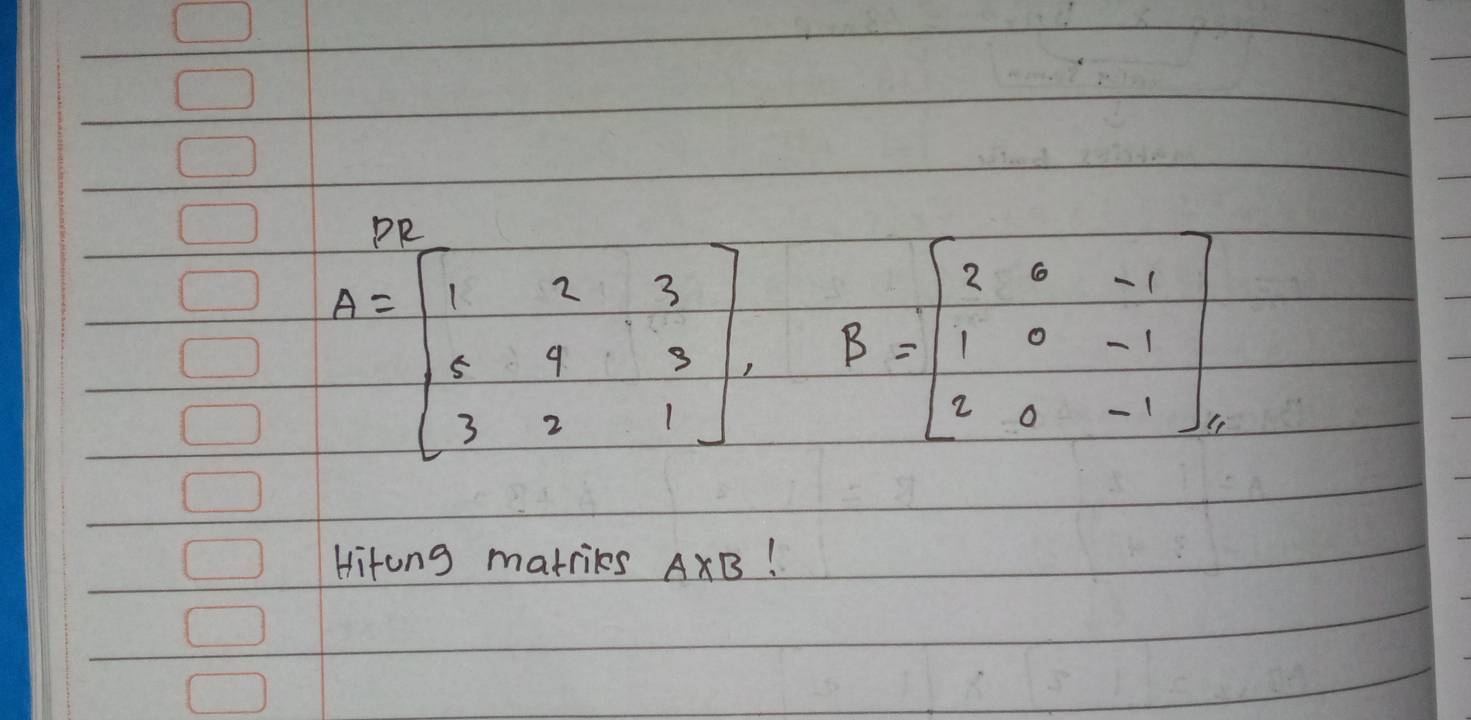 PR
A = [1 2 3
5 4 3
3 2 1], B = [2 0 -1
1 0 -1
2 0 -1]
Hitung matriks AXB !